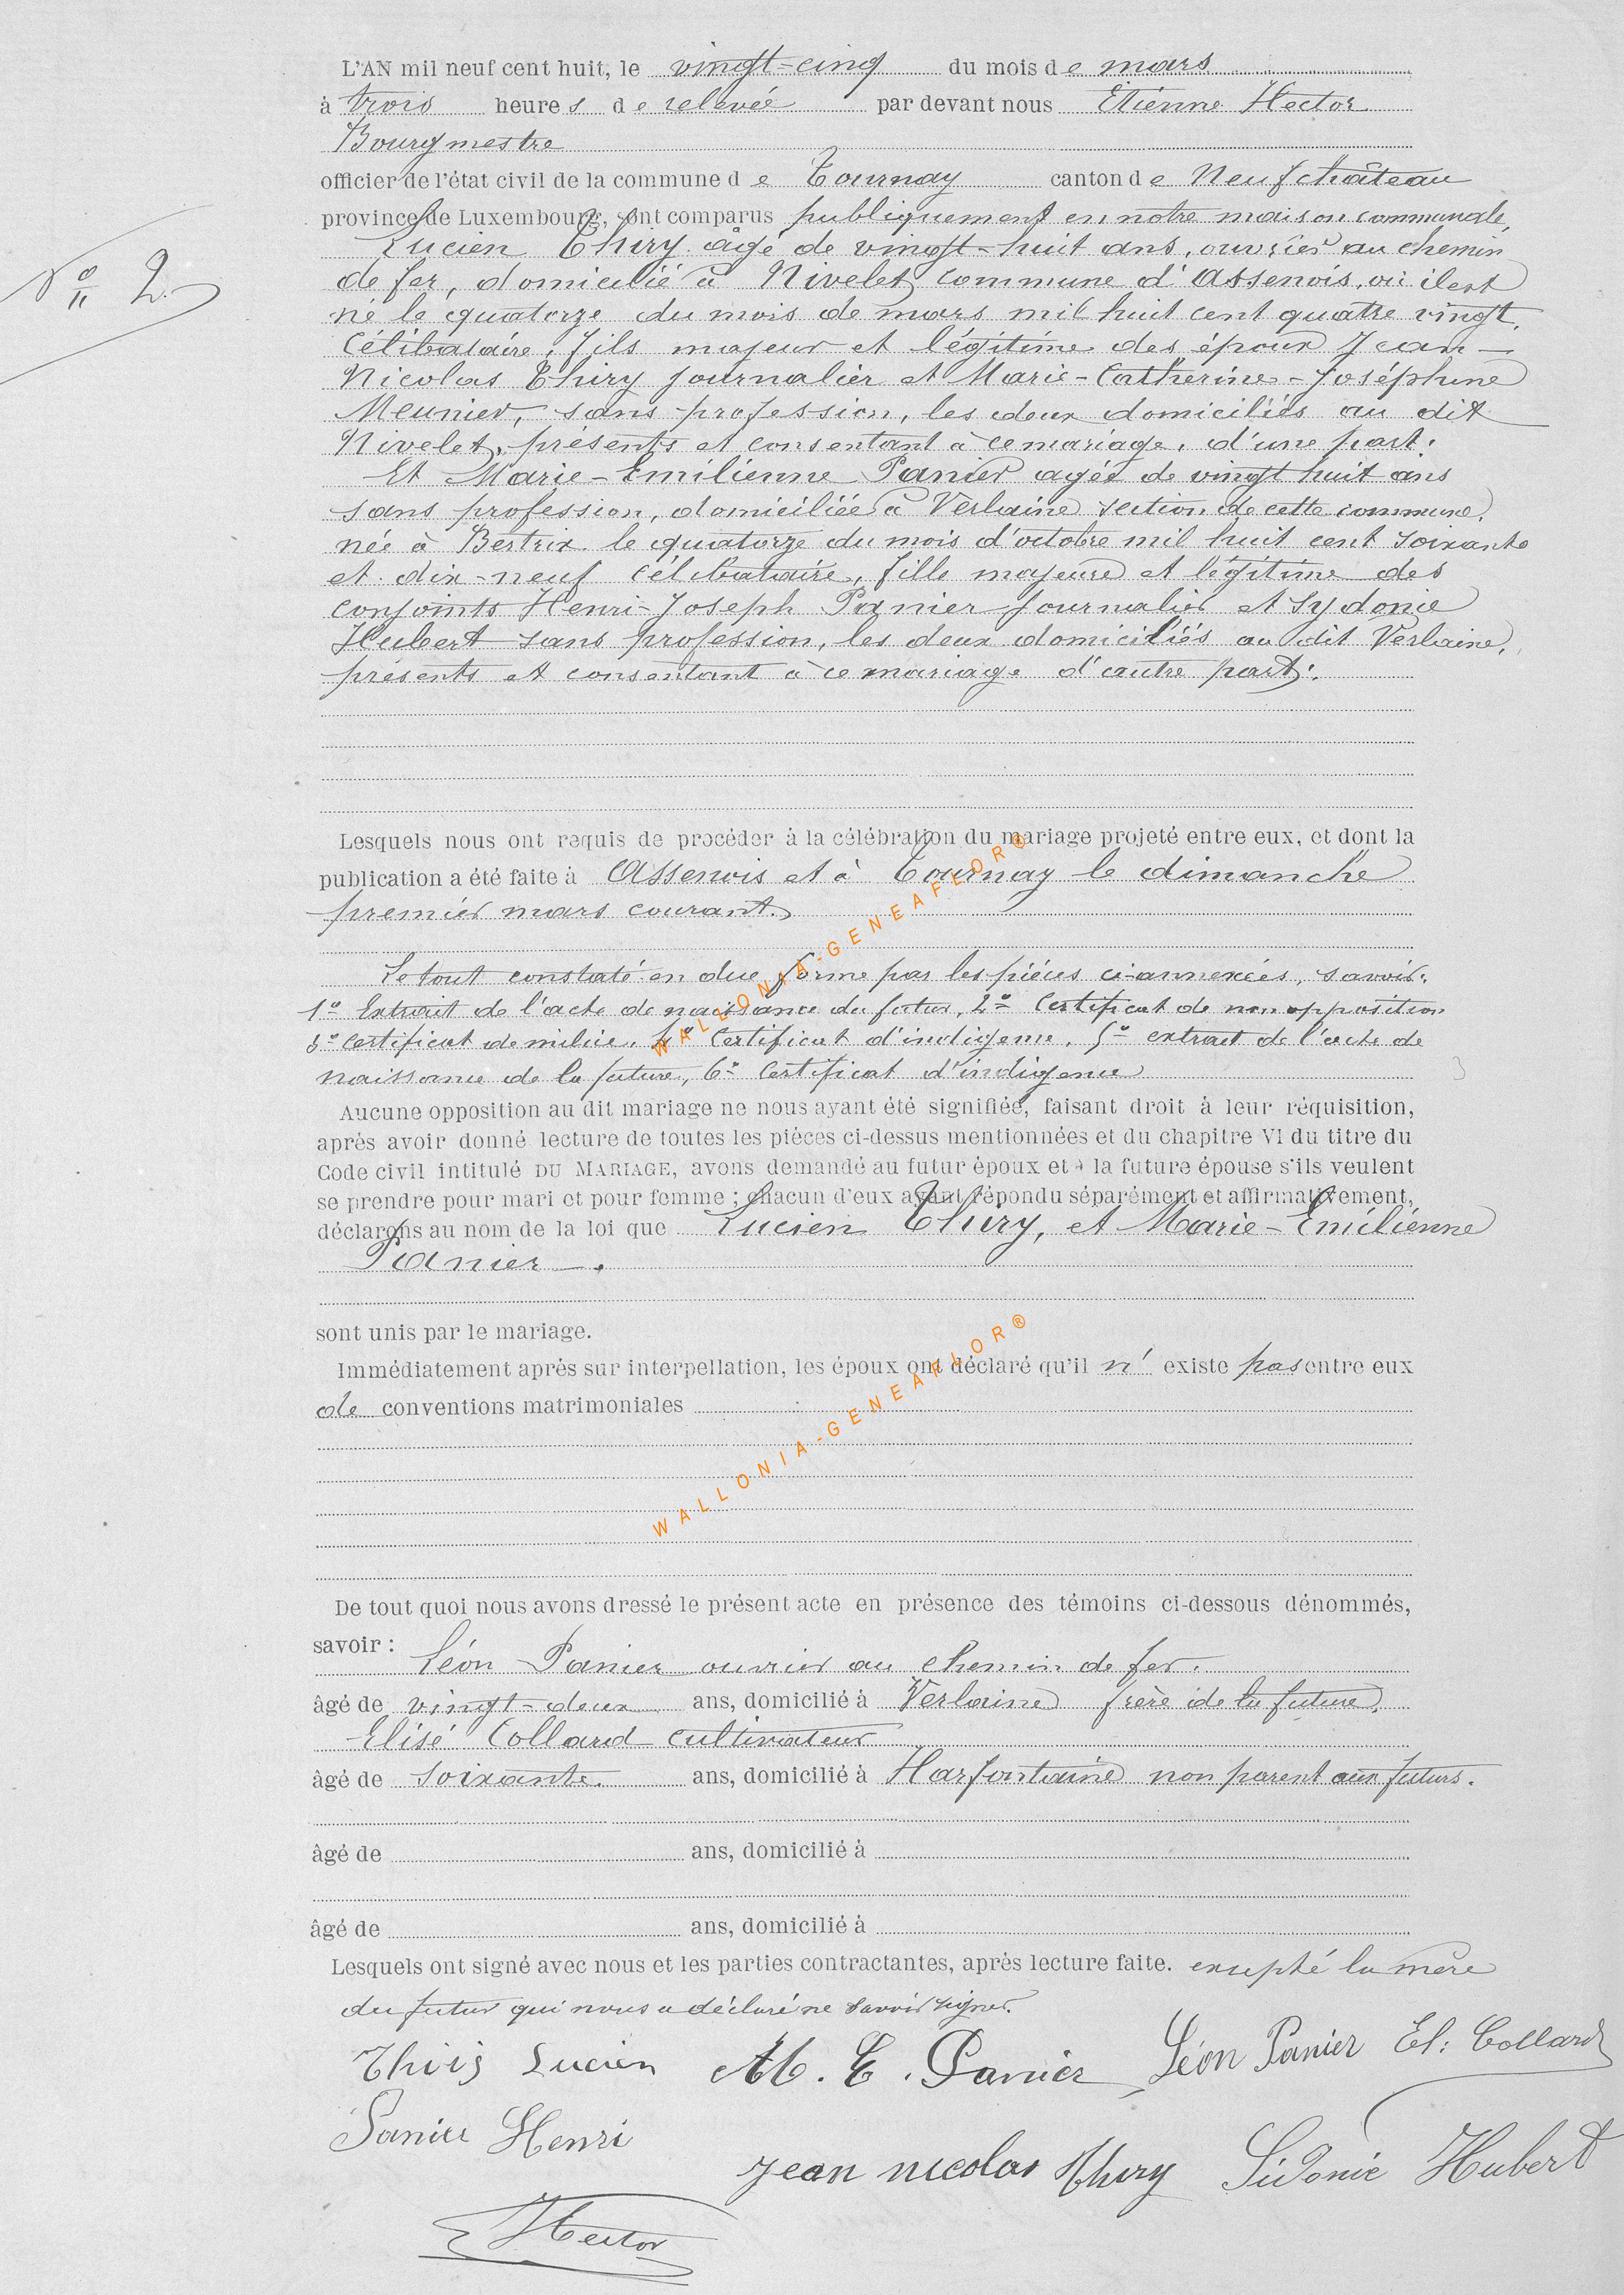 L'AN mil neuf cent huit, le vingt-cinq du mois de mars
à trois heures de relevée par devant nous Etienne Hector
Bourgmestre
officier de l'état civil de la commune de Tournay canton de Neufchâteau
province de Luxembourg, sont comparus publiquement en notre maison communale,
Lucien Thiry âgé de vingt-huit ans, ouvrier au chemin
de fer, domicilié à Nivelet commune d'Assenois, où il est
né le quatorze du mois de mars mil huit cent quatre vingt,
Célibataire, fils majeur et légitime des époux Jean-
Nicolas Thiry journalier et Marie-Catherine-Joséphine
Meunier, sans profession, les deux domiciliés au dit
Nivelet, présents et consentant à ce mariage, d'une part.
Et Marie-Emilienne Panier agée de vingt huit ans
sans profession, domiciliée à Verlaine section de cette commune,
née à Bertrix le quatorze du mois d'octobre mil huit cent soixante
et dix-neuf célibataire, fille majeure et légitime des
conjoints Henri-Joseph Panier journalier et Sydonie
Hubert sans profession, les deux domiciliés au dit Verlaine,
présents et consentant à ce mariage d'autre part.
No 2
Lesquels nous ont requis de procéder à la célébration du mariage projeté entre eux, et dont la
publication a été faite à Assenois et à Tournay le dimanche
premier mars courant.
Le tout constaté en due forme par les pièces ci-annexées, savoir:
1o Extrait de l'acte de naissance du futur, 2o Certificat de non opposition
3o Certificat de milice, 4o Certificat d'indigence, 5o extrait de l'acte de
naissance de la future, 6o Certificat d'indigence
Aucune opposition au dit mariage ne nous ayant été signifiée, faisant droit à leur réquisition,
après avoir donné lecture de toutes les pièces ci-dessus mentionnées et du chapitre VI du titre du
Code civil intitulé DU MARIAGE, avons demandé au futur époux et à la future épouse s'ils veulent
se prendre pour mari et pour femme ; chacun d'eux ayant répondu séparément et affirmativement,
déclarons au nom de la loi que Lucien Thiry, et Marie-Emilienne
Panier.
sont unis par le mariage.
Immédiatement après sur interpellation, les époux ont déclaré qu'il n' existe pas entre eux
de conventions matrimoniales
De tout quoi nous avons dressé le présent acte en présence des témoins ci-dessous dénommés,
savoir : Léon Panier ouvrier au chemin de fer.
âgé de vingt-deux ans, domicilié à Verlaine frère de la future.
Elisé Collard cultivateur
âgé de soixante. ans, domicilié à Harfontaine non parent aux futurs.
âgé de ans, domicilié à
âgé de ans, domicilié à
Lesquels ont signé avec nous et les parties contractantes, après lecture faite. excepté la mère
du futur qui nous a déclaré ne savoir signer.
Thiry Lucien M. E. Panier Léon Panier El: Collard
Panier Henri
Jean nicolas Thiry Sidonie Hubert
Hector
WALLONIA-GENEAFLOR®
WALLONIA-GENEAFLOR®